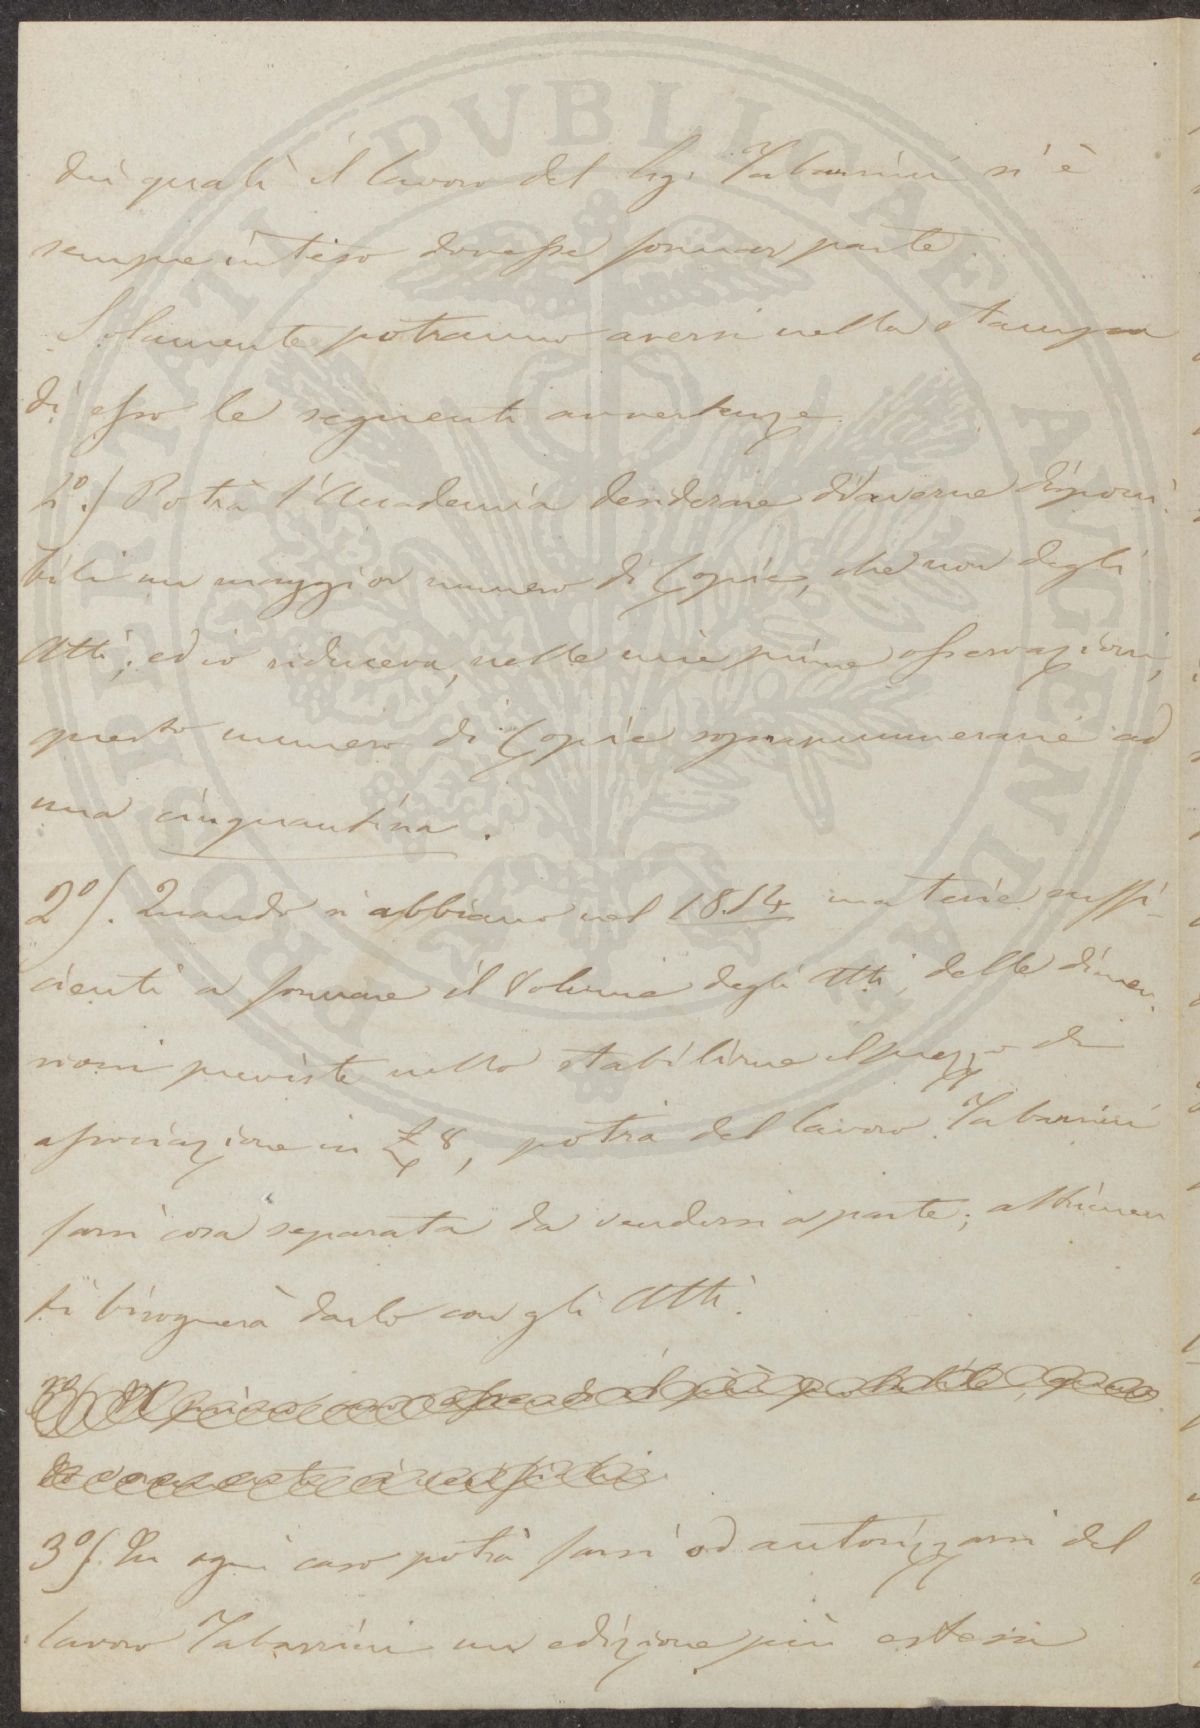 dei quali il lavoro del Sig. Tabarrini si è
sempre inteso dovesse formar parte.
Solamente potranno aversi nella stampa
di esso le seguenti avvertenze
1º.) Potrà l'Accademia desiderare d'averne disponi-
bili un maggior numero di Copie, che non degli
Atti; ed io riduceva, nelle mie prime osservazioni,
questo numero di Copie soprannumerarie ad
una cinquantina.
2º). Quando si abbiano nel 1854 materie suffi-
cienti a formare il Volume degli Atti, delle dimen-
sioni previste nello stabilirne il prezzo di
associazione in £ 8, potrà del lavoro Tabarrini
farsi cosa separata da vendersi a parte; altrimen
ti bisognerà darlo con gli Atti.
3º)
3º). In ogni caso potrà farsi od autorizzarsi del
lavoro Tabarrini un edizione più estesa
PROSPERITATI PVBLICAE AVGENDAE